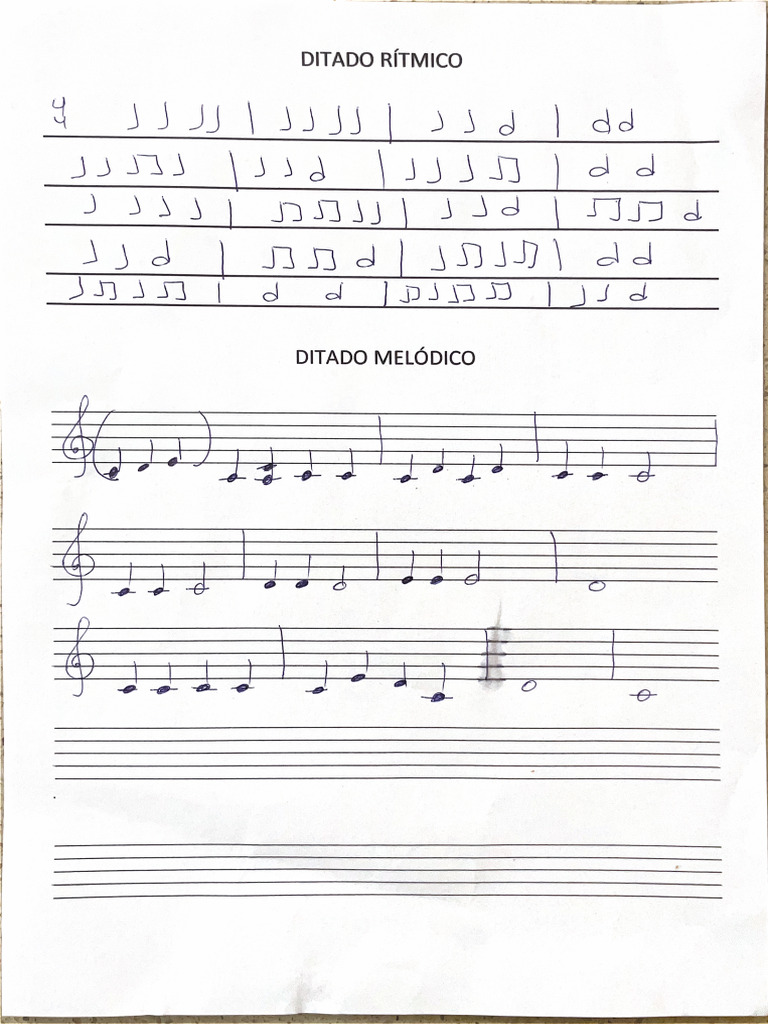 DITADO RÍTMICO
4
4
DITADO MELÓDICO